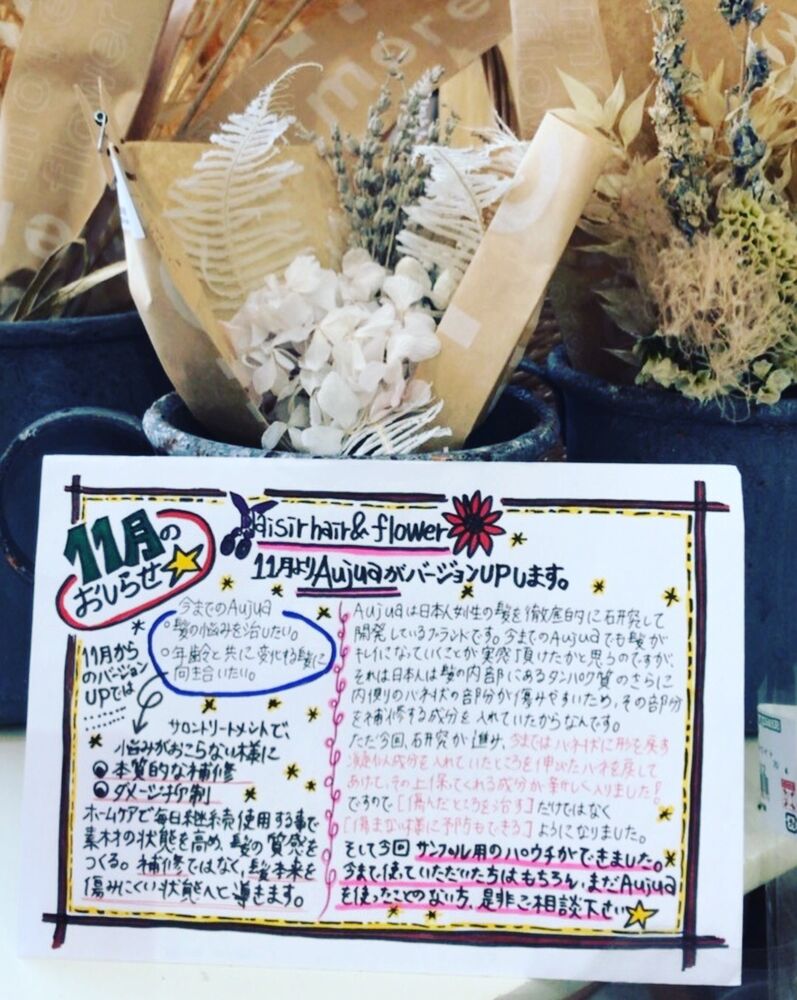 more
flower
more
11月の
おしらせ
aisir hair & flower
11月よりAujuaがバージョンUPします。
今までのAujua
○髪の悩みを治したい。
○年齢と共に変化する髪に
向き合いたい。
11月から
のバージョン
UPでは
サロントリートメントで、
悩みがおこらない様に
本質的な補修
ダメージ抑制
ホームケアで毎日継続使用する事で
素材の状態を高め、髪の質感を
つくる。補修ではなく、髪本来を
傷みにくい状態へと導きます。
Aujuaは日本人女性の髪を徹底的に研究して
開発しているブランドです。今までのAujuaでも髪が
キレイになっていくことが実感頂けたかと思うのですが、
それは日本人は髪の内部にあるタンパク質のさらに
内側のバネ状の部分が傷みやすいため、その部分
を補修する成分を入れていたからなんです。
ただ今回、研究が進み、今まではバネ状に形を戻す
疑似成分を入れていたところを伸びたバネを戻して
あげて、その上保ってくれる成分が新しく入りました!
ですので[傷んだところを治す]だけではなく
[傷まない様に予防もできる]ようになりました。
そして今回 サンプル用のパウチができました。
今まで使っていただいた方はもちろん、まだAujua
を使ったことのない方、是非ご相談下さい